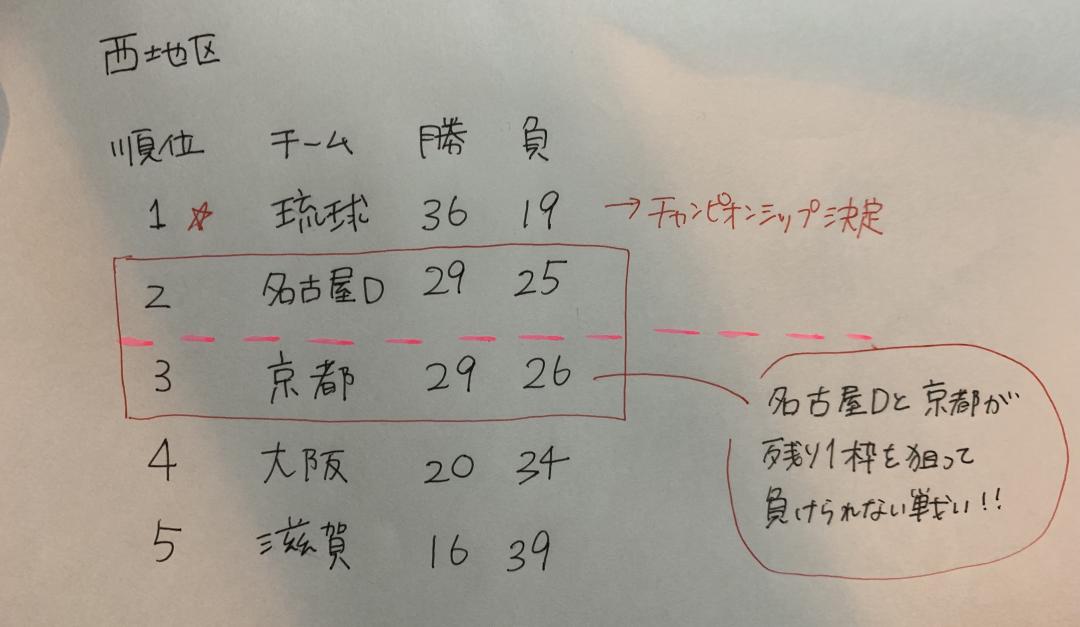 西地区
順位 チーム 勝 負
1 ☆ 琉球 36 19 → チャンピオンシップ決定
2 名古屋D 29 25
3 京都 29 26
4 大阪 20 34
5 滋賀 16 39
名古屋Dと京都が
残り1枠を狙って
負けられない戦い!!